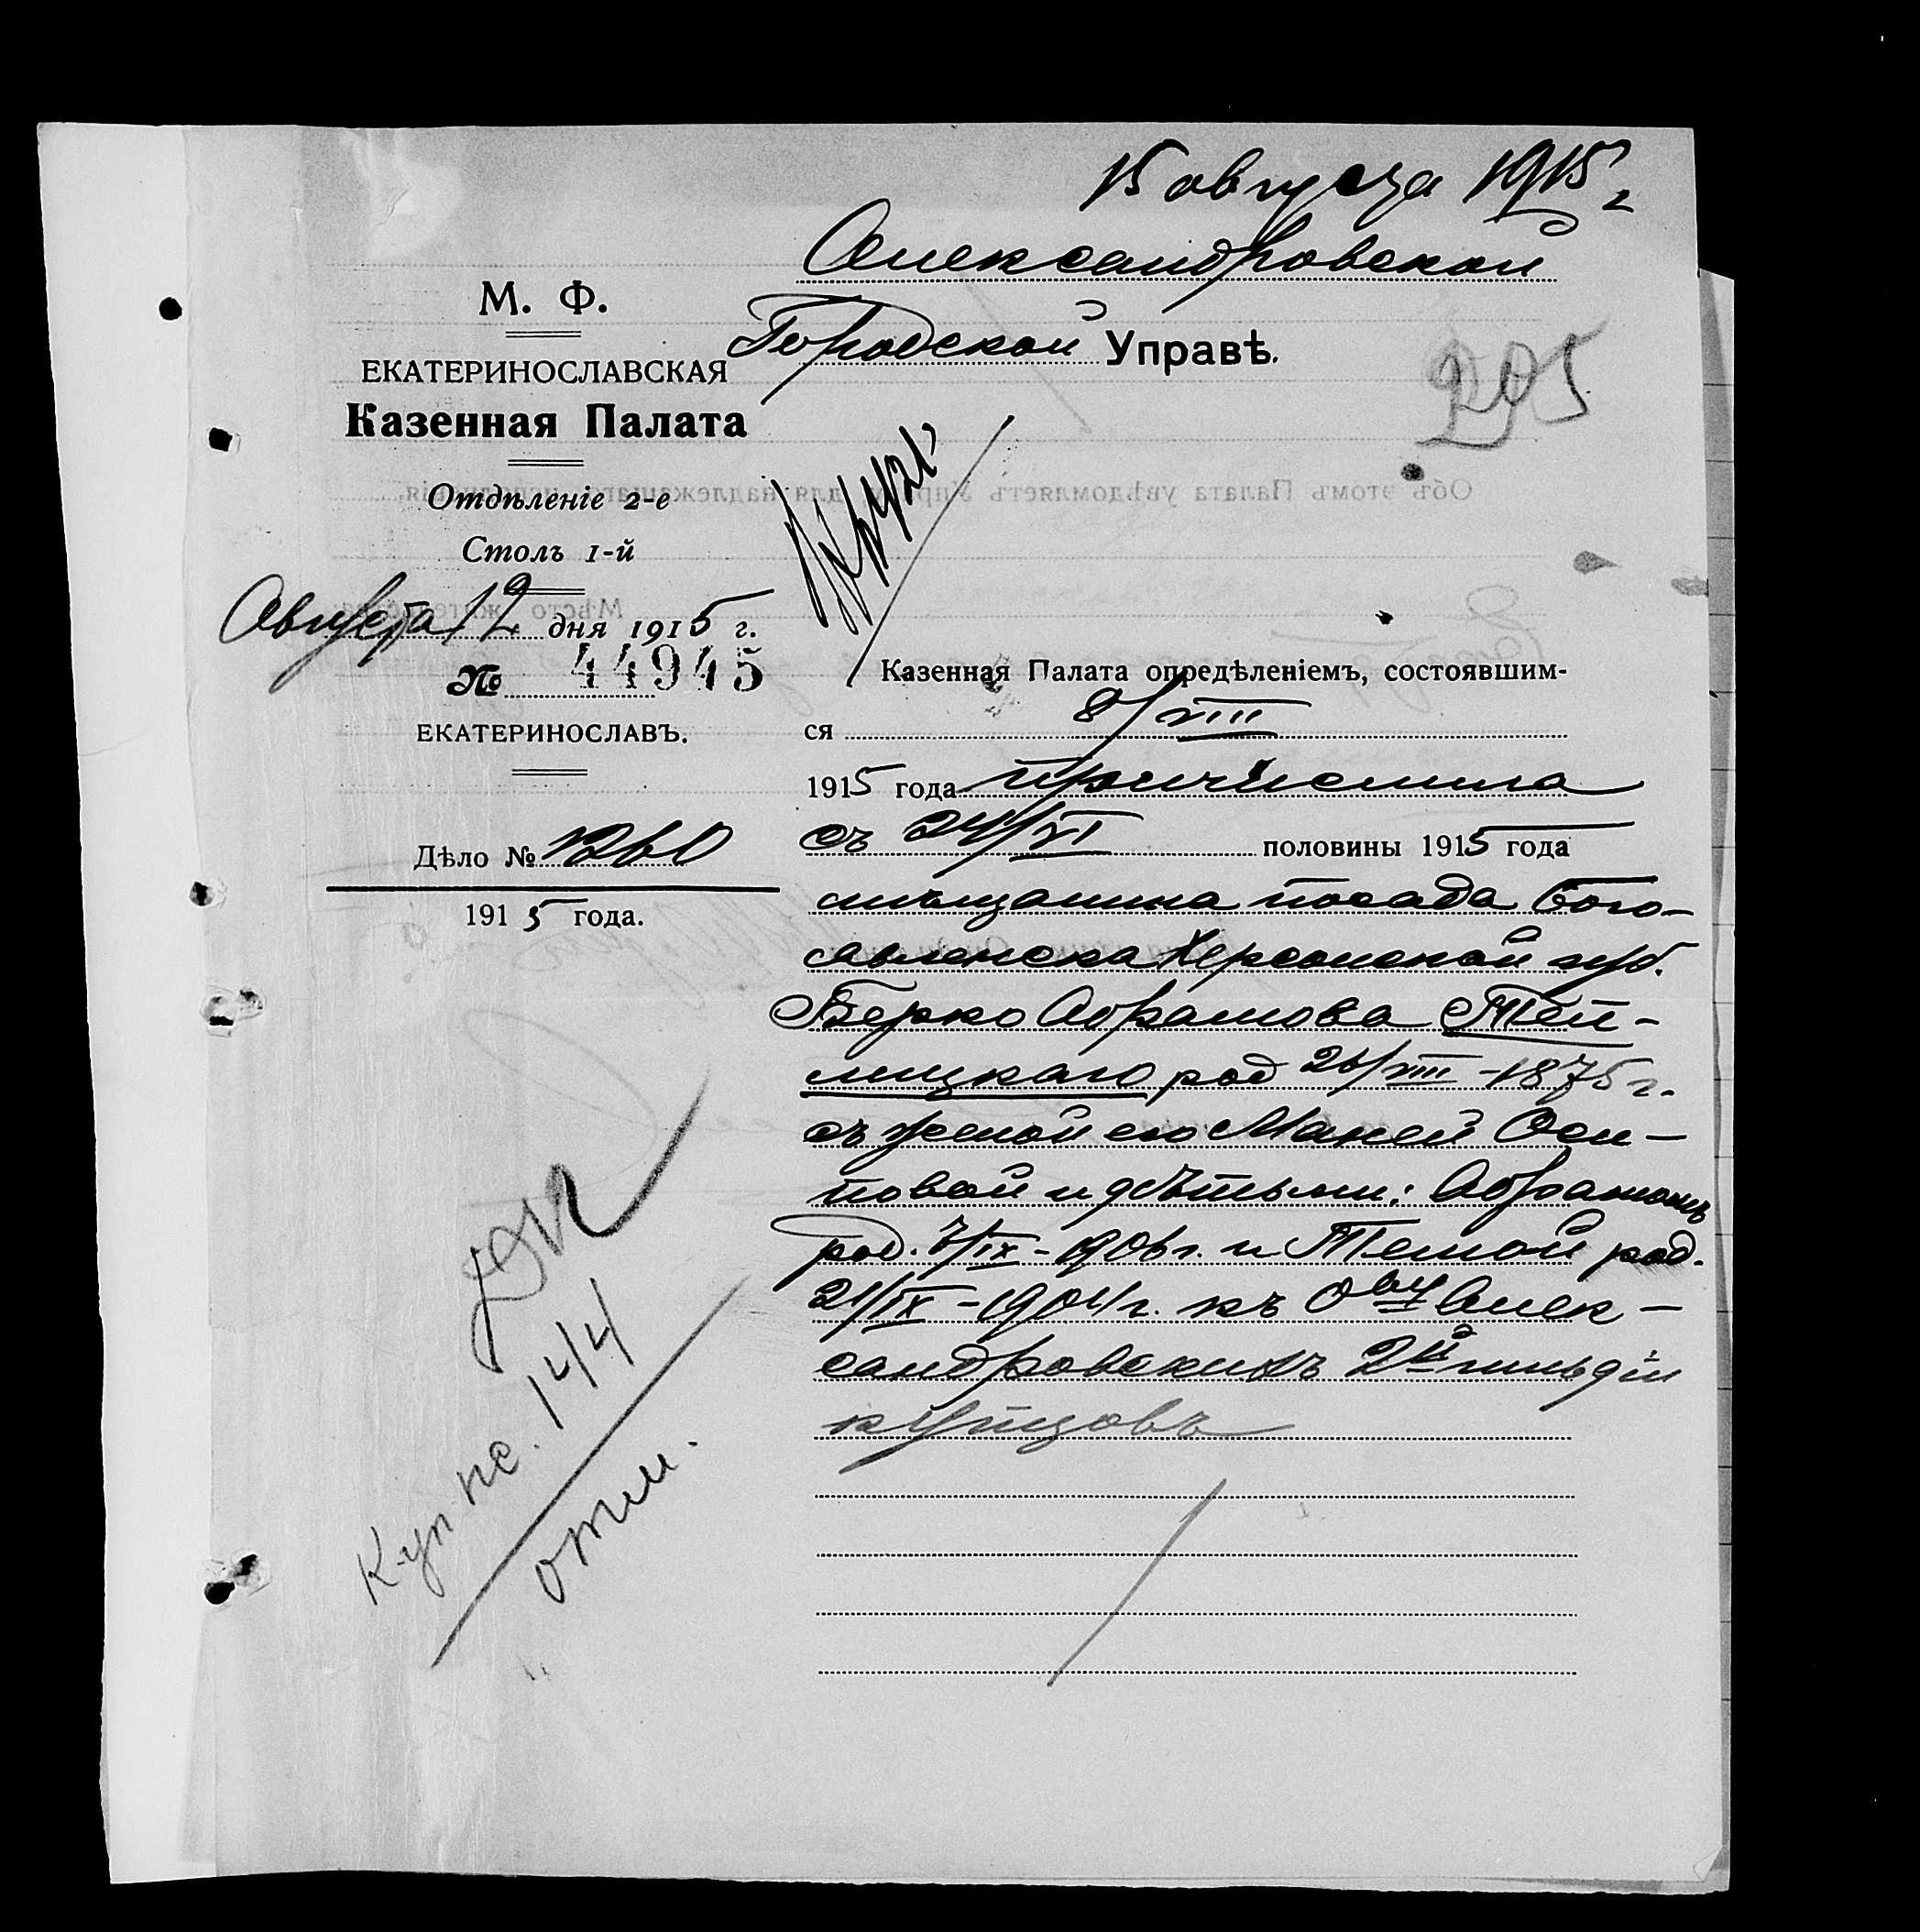 15 августа 1915 г
Александровской
Городской Управѣ.
205
М. Ф.
ЕКАТЕРИНОСЛАВСКАЯ
Казенная Палата
Отдѣленіе 2-е
Столъ 1-й
Августа 12 дня 1915 г.
№ 44945
ЕКАТЕРИНОСЛАВЪ.
Дѣло № 1260
1915 года.
Казенная Палата опредѣленіемъ, состоявшим-
ся 8/VIII
1915 года причислила
съ 24/VI половины 1915 года
мѣщанина посада Бого-
явленска Херсонской губ.
Берко Абрамова Теп-
лицкаго род 26/VIII - 1875 г.
съ женой его Маней Оси-
повой и дѣтьми: Абрамомъ
род. 7/IX - 1906 г. и Темой род.
21/IX - 1904 г. къ о-ву Алек-
сандровскихъ 2й гильдіи
купцовъ
Куп пс. 144
отм.
Объ этомъ Палата увѣдомляетъ Управу для надлежащаго исполненія,
Мѣсто жительства: